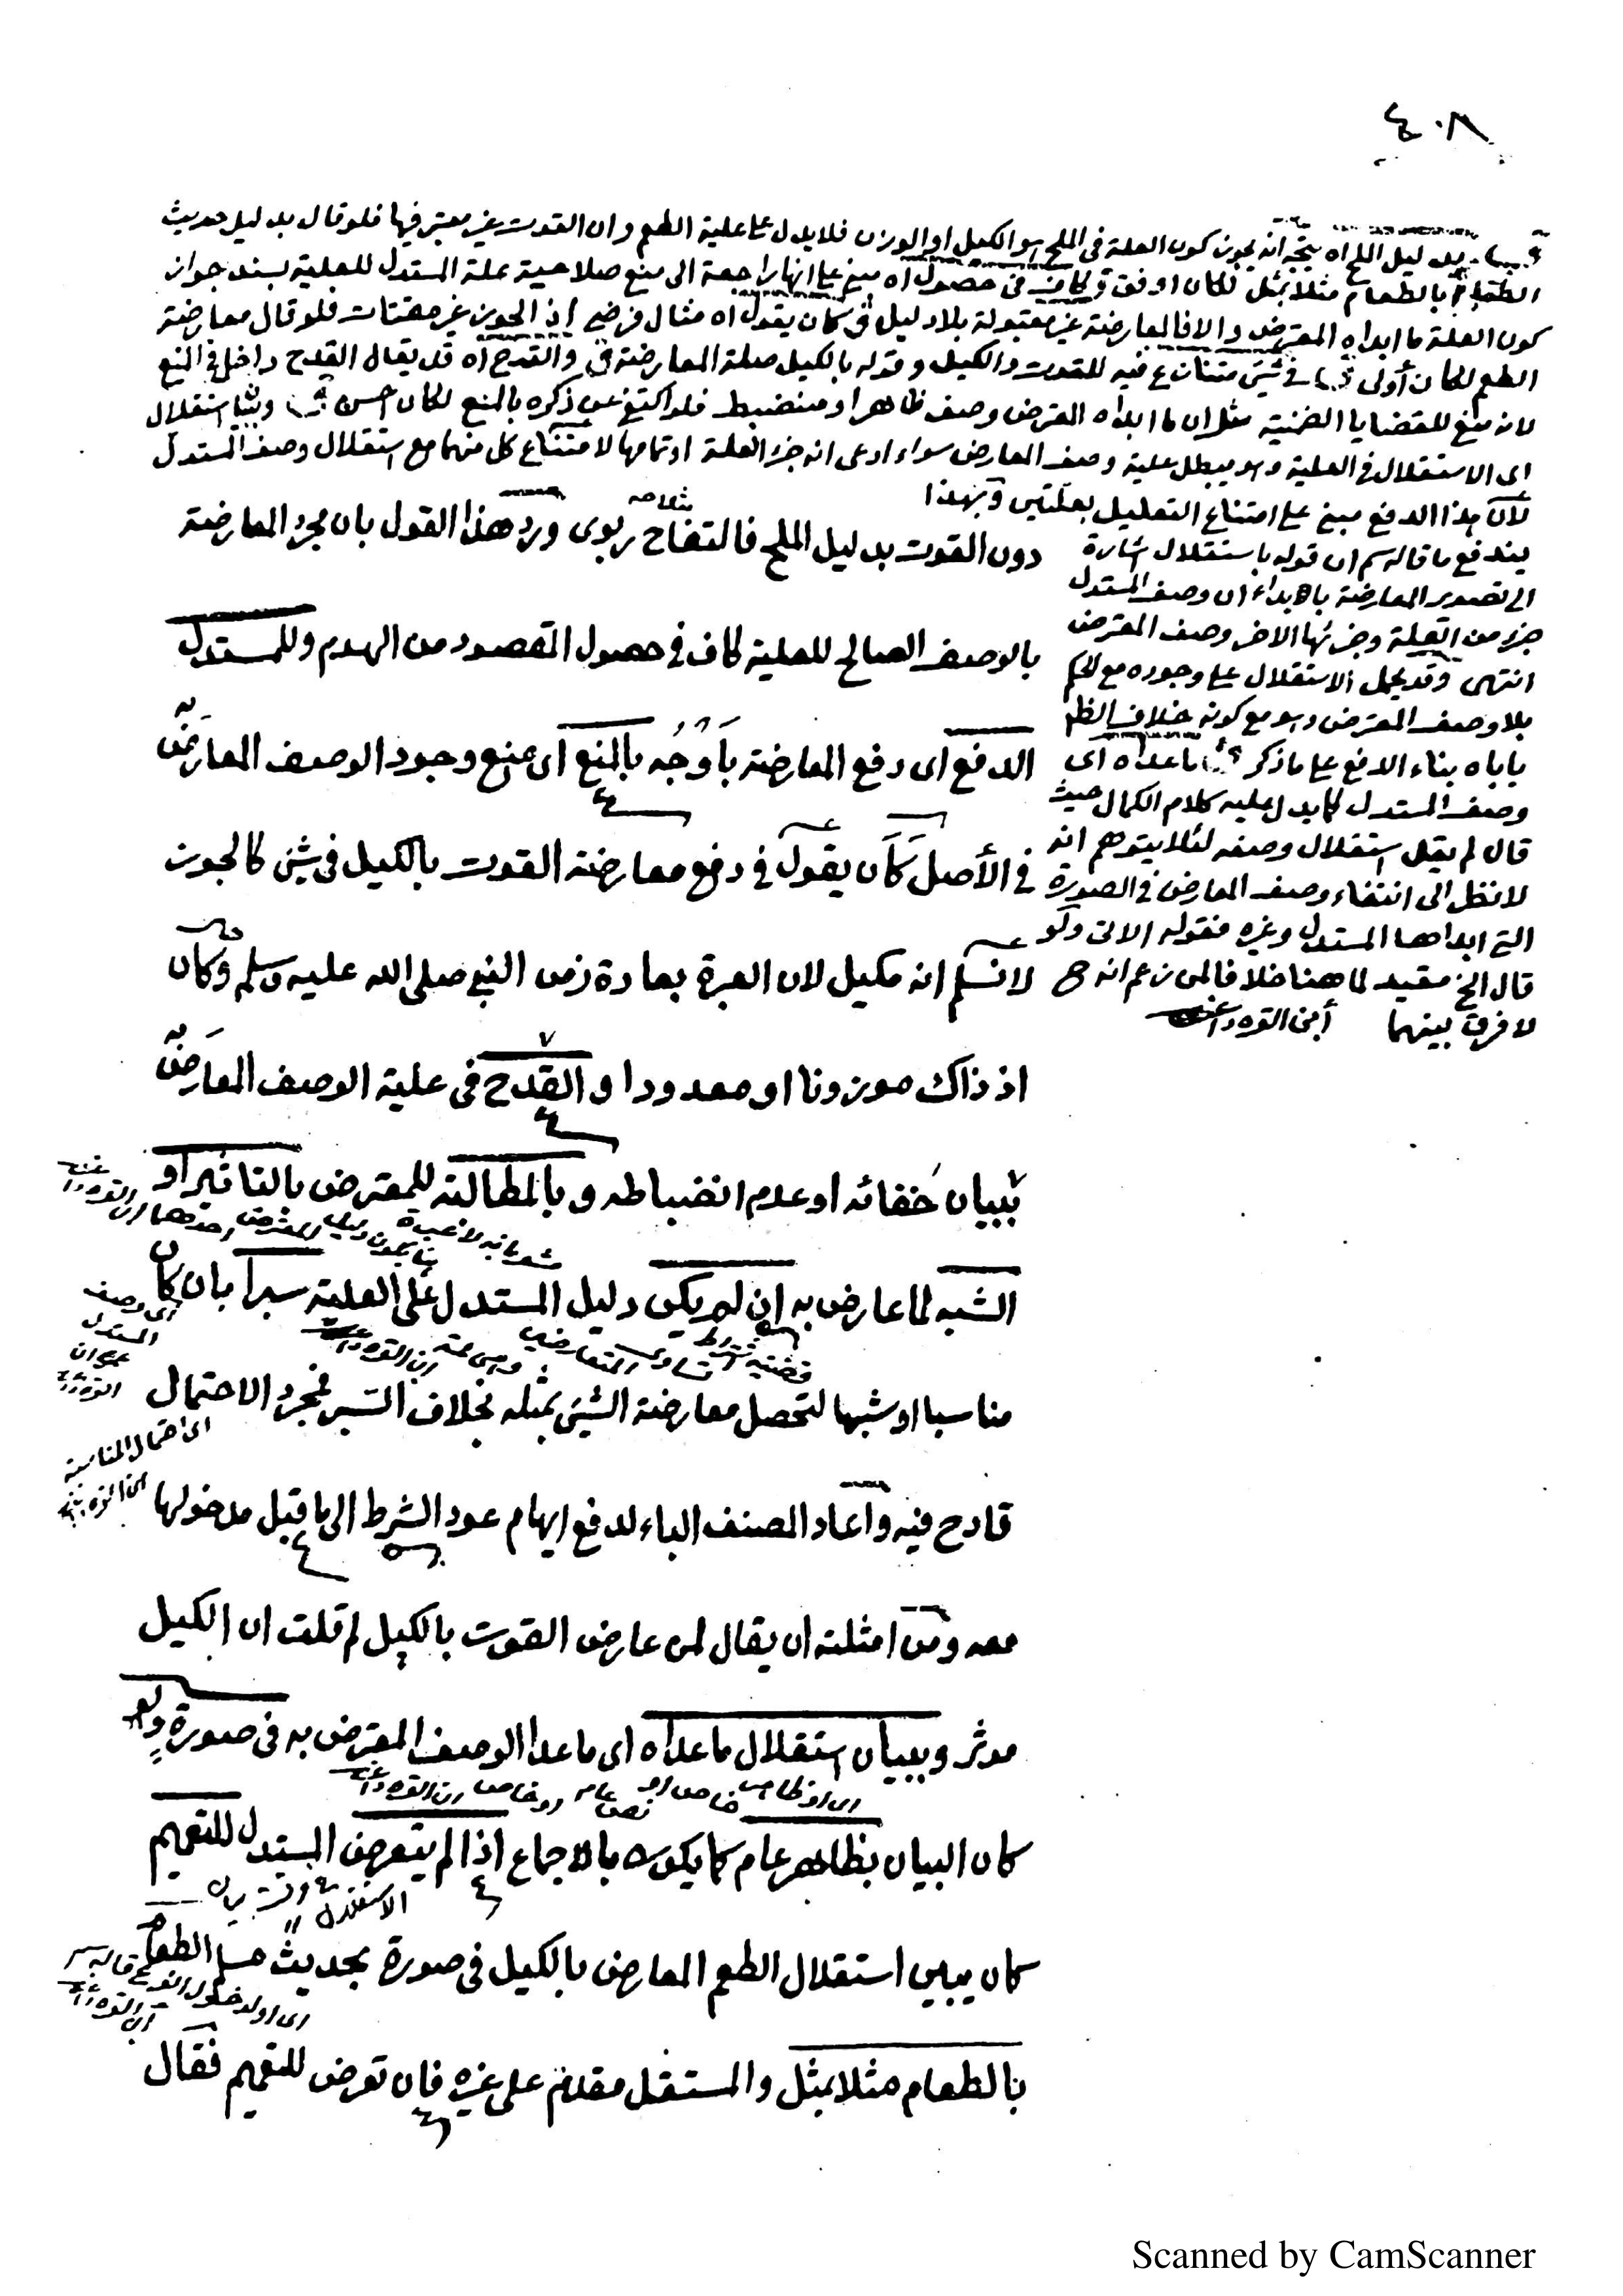 ٤٠٨
بدليل الملح اه يتجه انه يجوز كون العلة في الملح هو الكيل او الوزن فلا يدل على علية الطعم وان القوت غير معتبر فيها فلو قال بدليل حديث
الطعام بالطعام مثلا بمثل لكان اوفق وكاف في حصول اه مبني على انها راجعة الى منع صلاحية علة المستدل للعلية بسند جواز
كون العلة ما ابداه المعترض والا فالمعارضة غير مقبولة بلا دليل كان يقول اه مثال فرضي اذ الجوز غير مقتات فلو قال معارضة
الطعم لكان أولى في شيئ متنازع فيه للقوت والكيل وقوله بالكيل صلة المعارضة والقدح اه قد يقال القدح داخل في المنع
لانه منع للقضايا الضمنية مثل ان ما ابداه المعترض وصف ظاهر او منضبط فلو اكتفى عن ذكره بالمنع لكان احسن استقلال
اى الاستقلال في العلية وهو يبطل علية وصف المعارض سواء ادعى انه جزء العلة او تمامها لامتناع كل منهما مع استقلال وصف المستدل
لأن هذا الدفع مبني على امتناع التعليل بعلتين وبهذا
يندفع ما قاله سم ان قوله باستقلال اشارة
الى تصوير المعارضة بابداء ان وصف المستدل
جزء من العلة وجزئها الاخر وصف المعترض
انتهى وقد يحمل الاستقلال على وجوده مع الحكم
بلا وصف المعترض وهو مع كونه خلاف الظ
ياباه بناء الدفع على ما ذكر ما عداه اى
وصف المستدل كما يدل عليه كلام الكمال حيث
قال لم يقل استقلال وصفه لئلا يتوهم انه
لا نظر الى انتفاء وصف المعارض في الصورة
التي ابداها المستدل وغيره فقوله الاتى ولو
قال الخ مقيد لما هنا خلافا لمن زعم انه ح
لا فرق بينهما ابن القره داغى
دون القوت بدليل الملح فالتفاح ربوى ورد هذا القول بان مجرد المعارضة
بالوصف الصالح للعلية كاف في حصول المقصود من الهدم وللمستدل
الدفع اى دفع المعارضة بأوجُه بالمنع اى منع وجود الوصف المعارَض به
في الأصل كأن يقول في دفع معارضة القوت بالكيل في شيئ كالجوز
لا نسلم انه مكيل لان العبرة بعادة زمن النبي صلى الله عليه وسلم وكان
اذ ذاك موزونا او معدودا و القدح في علية الوصف المعارَض به
ببيان خفائه او عدم انضباطه و بالمطالبة للمعترض بالتاثير او
الشبه لما عارض به ان لم يكن دليل المستدل على العلية سبرا بان كان
مناسبا او شبها لتحصل معارضة الشيئ بمثله بخلاف السبر فمجرد الاحتمال
اى وصف
المستدل
اى احتمال المناسبة
قادح فيه واعاد المصنف الباء لدفع ايهام عود الشرط الى ما قبل مدخولها
معه ومن امثلته ان يقال لمن عارض القوت بالكيل لم قلت ان الكيل
موثر وببيان استقلال ما عداه اى ما عدا الوصف المعترض به في صورة ولو
كان البيان بظاهر عام كما يكون بالاجماع اذا لم يتعرض المستدل للتعميم
كان يبين استقلال الطعم المعارض بالكيل في صورة بحديث مسلم الطعام
بالطعام مثلا بمثل والمستقل مقدم على غيره فان تعرض للتعميم فقال
Scanned by CamScanner